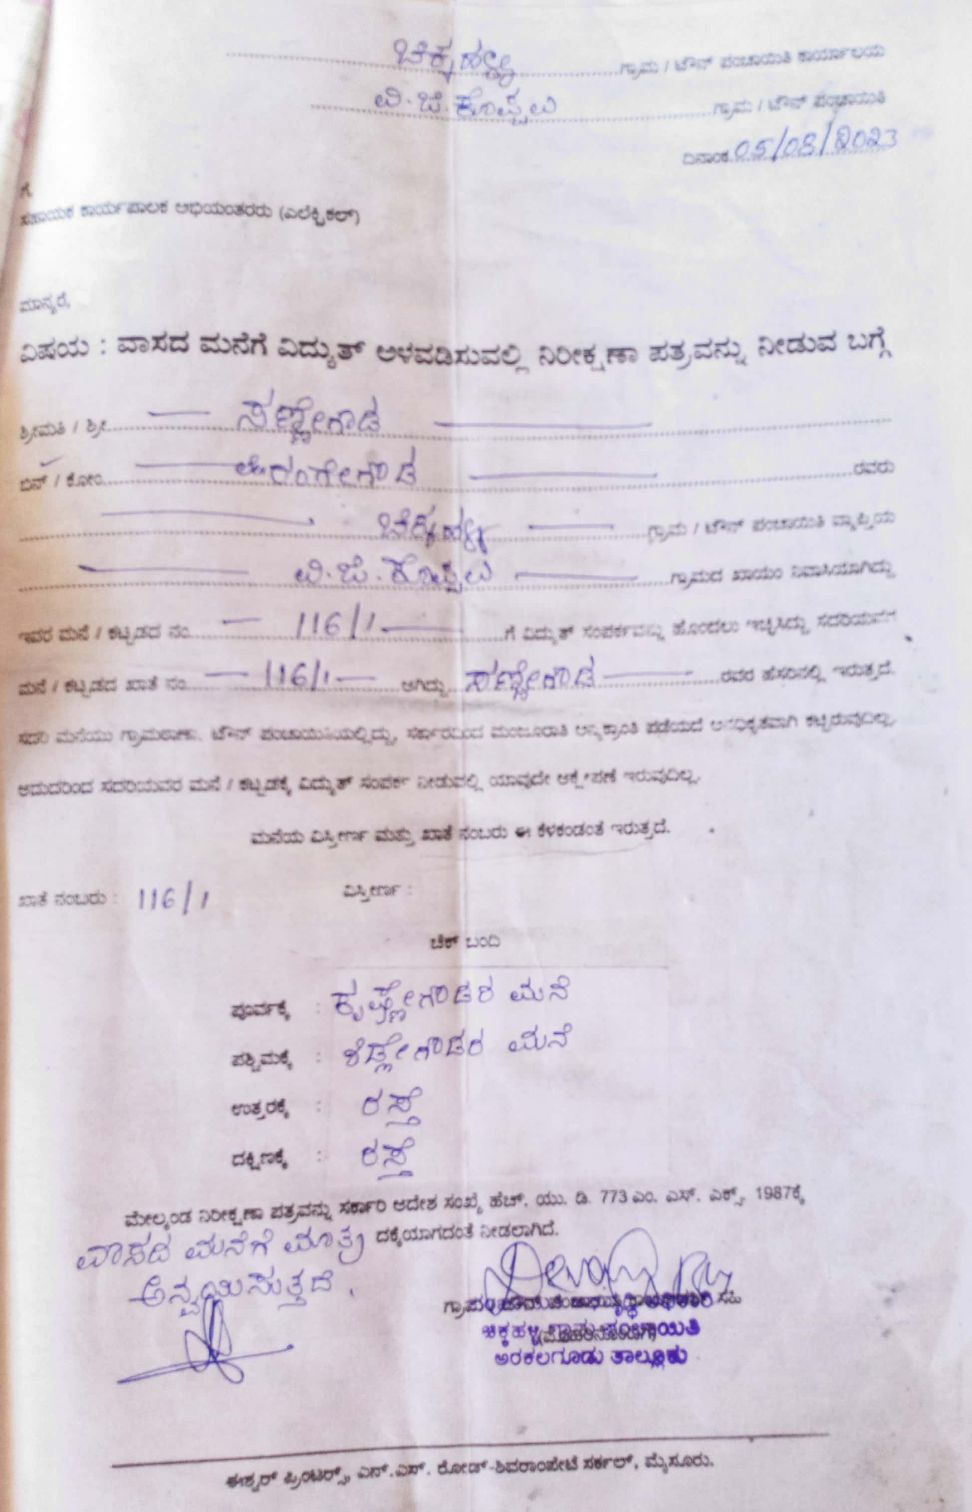 ಚಿಕ್ಕಹಳ್ಳಿ ಗ್ರಾಮ / ಟೌನ್ ಪಂಚಾಯಿತಿ ಕಾರ್ಯಾಲಯ
ವಿ.ಜೆ.ಕೊಪ್ಪಲು ಗ್ರಾಮ / ಟೌನ್ ಪಂಚಾಯಿತಿ
ದಿನಾಂಕ 05/08/2023
ಗೆ,
ಸಹಾಯಕ ಕಾರ್ಯಪಾಲಕ ಅಭಿಯಂತರರು (ಎಲೆಕ್ಟ್ರಿಕಲ್)
ಮಾನ್ಯರೆ,
ವಿಷಯ : ವಾಸದ ಮನೆಗೆ ವಿದ್ಯುತ್ ಅಳವಡಿಸುವಲ್ಲಿ ನಿರೀಕ್ಷಣಾ ಪತ್ರವನ್ನು ನೀಡುವ ಬಗ್ಗೆ
ಶ್ರೀಮತಿ / ಶ್ರೀ ಸಣ್ಣೇಗೌಡ
ಬಿನ್ / ಕೋಂ ರಂಗೇಗೌಡ ರವರು
ಚಿಕ್ಕಹಳ್ಳಿ ಗ್ರಾಮ / ಟೌನ್ ಪಂಚಾಯಿತಿ ವ್ಯಾಪ್ತಿಯ
ವಿ.ಜೆ.ಕೊಪ್ಪಲು ಗ್ರಾಮದ ಖಾಯಂ ನಿವಾಸಿಯಾಗಿದ್ದು
ಇವರ ಮನೆ / ಕಟ್ಟಡದ ನಂ 116/1 ಗೆ ವಿದ್ಯುತ್ ಸಂಪರ್ಕವನ್ನು ಹೊಂದಲು ಇಚ್ಛಿಸಿದ್ದು ಸದರಿಯವರ
ಮನೆ / ಕಟ್ಟಡದ ಖಾತೆ ನಂ 116/1 ಆಗಿದ್ದು ಸಣ್ಣೇಗೌಡ ರವರ ಹೆಸರಿನಲ್ಲಿ ಇರುತ್ತದೆ.
ಸದರಿ ಮನೆಯು ಗ್ರಾಮಠಾಣಾ, ಟೌನ್ ಪಂಚಾಯಿತಿಯಲ್ಲಿದ್ದು, ಸರ್ಕಾರದಿಂದ ಮಂಜೂರಾತಿ ಪಡೆಯದೆ ಅನಧಿಕೃತವಾಗಿ ಕಟ್ಟಿರುವುದಿಲ್ಲ,
ಆದುದರಿಂದ ಸದರಿಯವರ ಮನೆ / ಕಟ್ಟಡಕ್ಕೆ ವಿದ್ಯುತ್ ಸಂಪರ್ಕ ನೀಡುವಲ್ಲಿ ಯಾವುದೇ ಆಕ್ಷೇಪಣೆ ಇರುವುದಿಲ್ಲ.
ಮನೆಯ ವಿಸ್ತೀರ್ಣ ಮತ್ತು ಖಾತೆ ನಂಬರು ಈ ಕೆಳಕಂಡಂತೆ ಇರುತ್ತದೆ.
ಖಾತೆ ನಂಬರು : 116/1 ವಿಸ್ತೀರ್ಣ :
ಚೆಕ್ ಬಂದಿ
ಪೂರ್ವಕ್ಕೆ : ಕೃಷ್ಣೇಗೌಡರ ಮನೆ
ಪಶ್ಚಿಮಕ್ಕೆ : ಮನೆ
ಉತ್ತರಕ್ಕೆ : ರಸ್ತೆ
ದಕ್ಷಿಣಕ್ಕೆ : ರಸ್ತೆ
ಮೇಲ್ಕಂಡ ನಿರೀಕ್ಷಣಾ ಪತ್ರವನ್ನು ಸರ್ಕಾರಿ ಆದೇಶ ಸಂಖ್ಯೆ ಹೆಚ್. ಯು. ಡಿ. 773 ಎಂ. ಎಸ್. ಎಕ್ಸ್. 1987ಕ್ಕೆ
ದಕ್ಕೆಯಾಗದಂತೆ ನೀಡಲಾಗಿದೆ.
ವಾಸದ ಮನೆಗೆ ಮಾತ್ರ
ಅನ್ವಯಿಸುತ್ತದೆ.
ಚಿಕ್ಕಹಳ್ಳಿ ಗ್ರಾಮ ಪಂಚಾಯಿತಿ
ಅರಕಲಗೂಡು ತಾಲ್ಲೂಕು
ಈಶ್ವರ್ ಪ್ರಿಂಟರ್ಸ್, ಎನ್.ಎಸ್. ರೋಡ್-ಶಿವರಾಂಪೇಟೆ ಸರ್ಕಲ್, ಮೈಸೂರು.